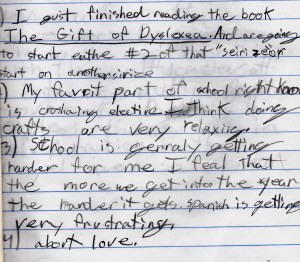 ) I gust finished reading the book
The Gift of Dyslexea. And are going
to start eathe #2 of that "seirizeor
start on anothersirize
) My favrit part of school right now
is croshaing elective I think doing
crafts are very relaxing.
3) School is genraly getting
harder for me I feel that
the more we get into the year
the harder it gets. spanish is getting
very frustrating,
4) abort love.